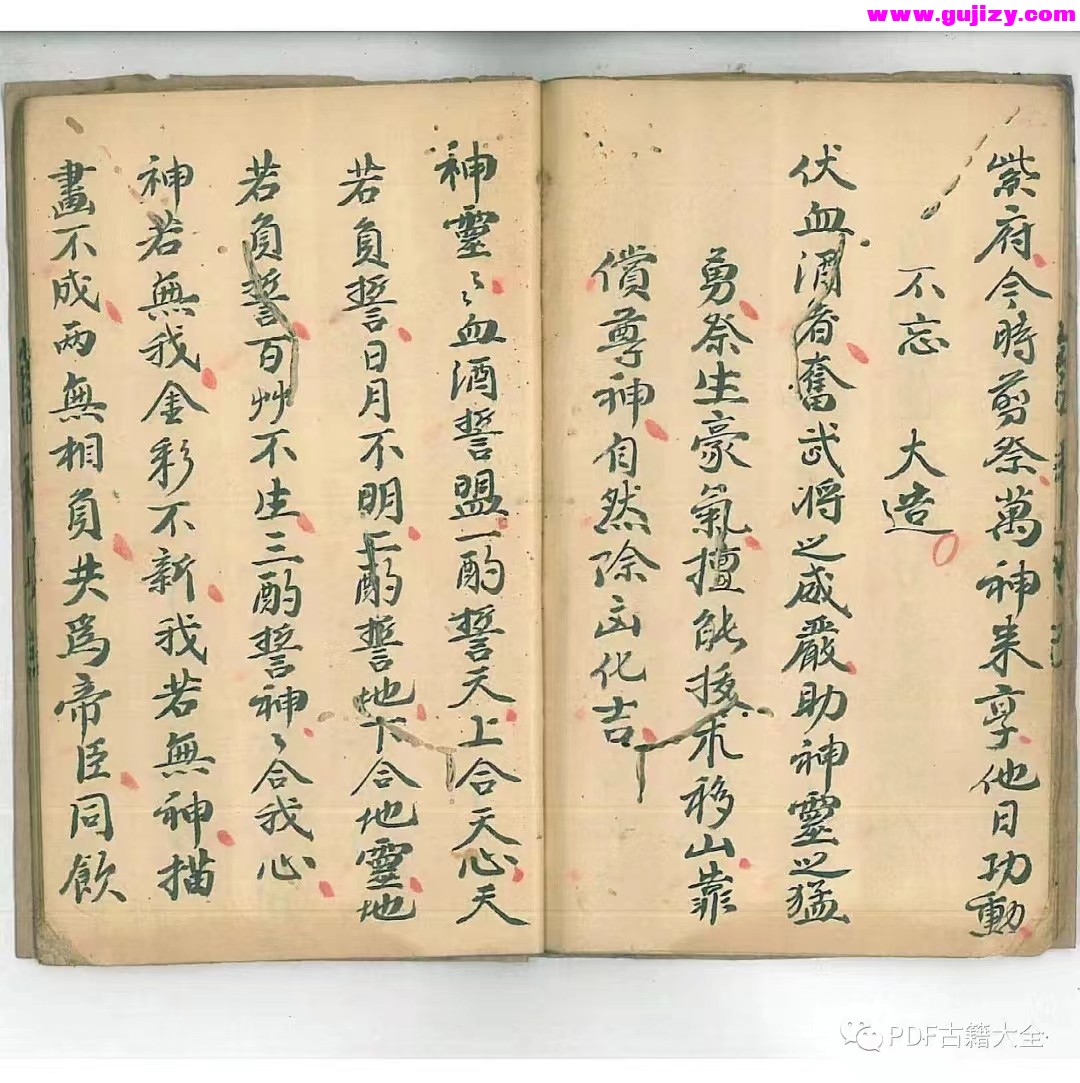 www.gujizy.com
紫府令時剪祭萬神来享他日功動
不忘 大造
伏血酒者奮武將之威嚴助神靈之猛
勇祭生豪氣擅能拔木移山靠
償尊神自然除凶化吉
神靈々血酒誓盟一酌誓天上合天心天
若負誓日月不明二酌誓地下合地靈地
若負誓百艸不生三酌誓神々合我心
神若無我金彩不新我若無神描
畫不成兩無相負共爲帝臣同飲
PDF古籍大全